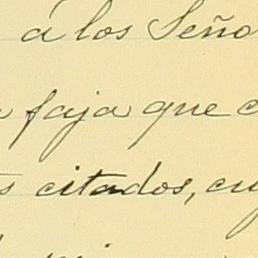 á los Seño
faja que c
s citados, cuy